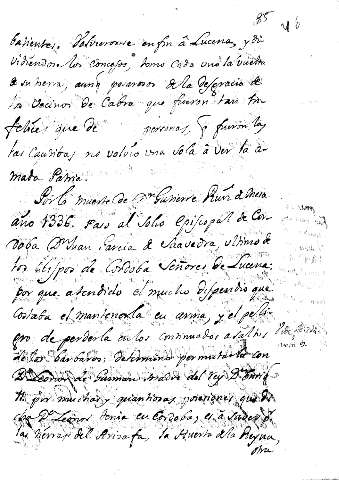 85
batientes. Volvieronse en fin â Lucena, y di
vidiendose los concejos, tomo cada uno la vuelta
de su tierra, aunq pesarosos de la desgracia de
los vecinos de Cabra que fueron tan in
felices, que de personas, q fueron las
tas cautibas no volvio una sola â ver la a
mada Patria.
Por la muerte de Dn Gutierre Ruiz de Mesa
año 1336. Paso al Solio Episcopal de Cor
doba Dn Juan Garcia de Saavedra, ultimo de
los Obispos de Cordoba Señores de Lucena;
por que atendido el mucho dispendio que
costaba el mantenerla en arma, y el peli
gro de perderla en los continuados asaltos
de los barbaros: determino permutarla con
Da Leonor de Guzman Madre del Rey Dn Enrri
por muchas y quantiosas posesiones que di
cha Da Leonor tenia en Cordoba, es â saber
las tierras del Arizafa, la Huerta de la Reyna,
otra